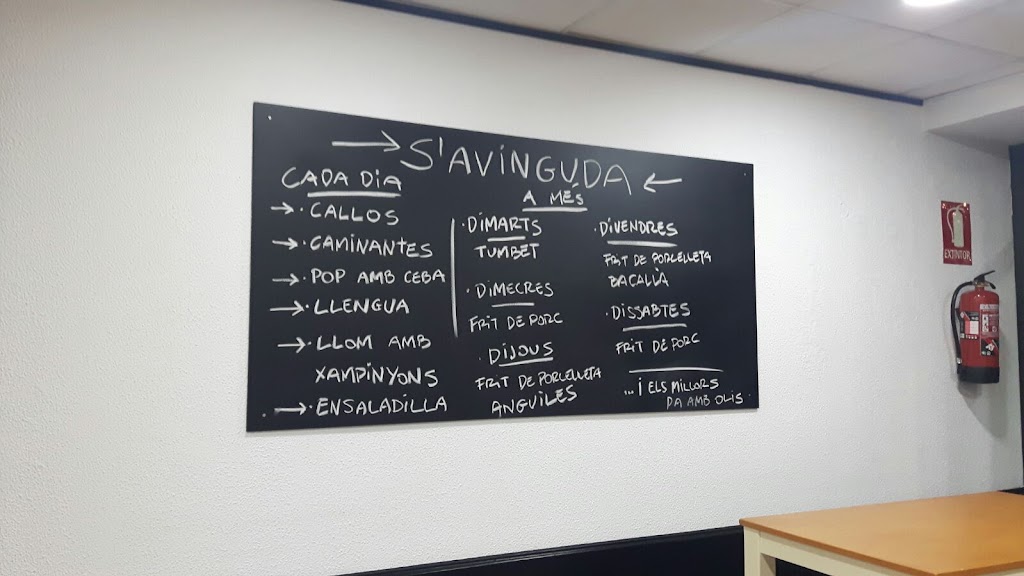 → S'AVINGUDA ←
CADA DIA
→ · CALLOS
→ · CAMINANTES
→ · POP AMB CEBA
→ · LLENGUA
→ · LLOM AMB
XAMPINYONS
→ · ENSALADILLA
A MÉS
· DIMARTS
TUMBET
· DIMECRES
FRIT DE PORC
· DIJOUS
FRIT DE PORCELLETA
ANGUILES
· DIVENDRES
FRIT DE PORCELLETA
BACALLÀ
· DISSABTES
FRIT DE PORC
...I ELS MILLORS
PA AMB OLIS
EXTINTOR